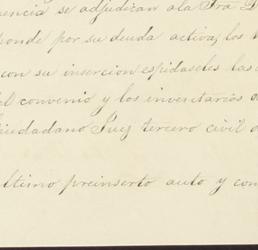 se adjudican a la Sra
ponde por su deuda activa, los
con su insercion espidasele las
el convenio y los inventarios
Ciudadano Juez tercero civil
ultimo preinserto auto y con